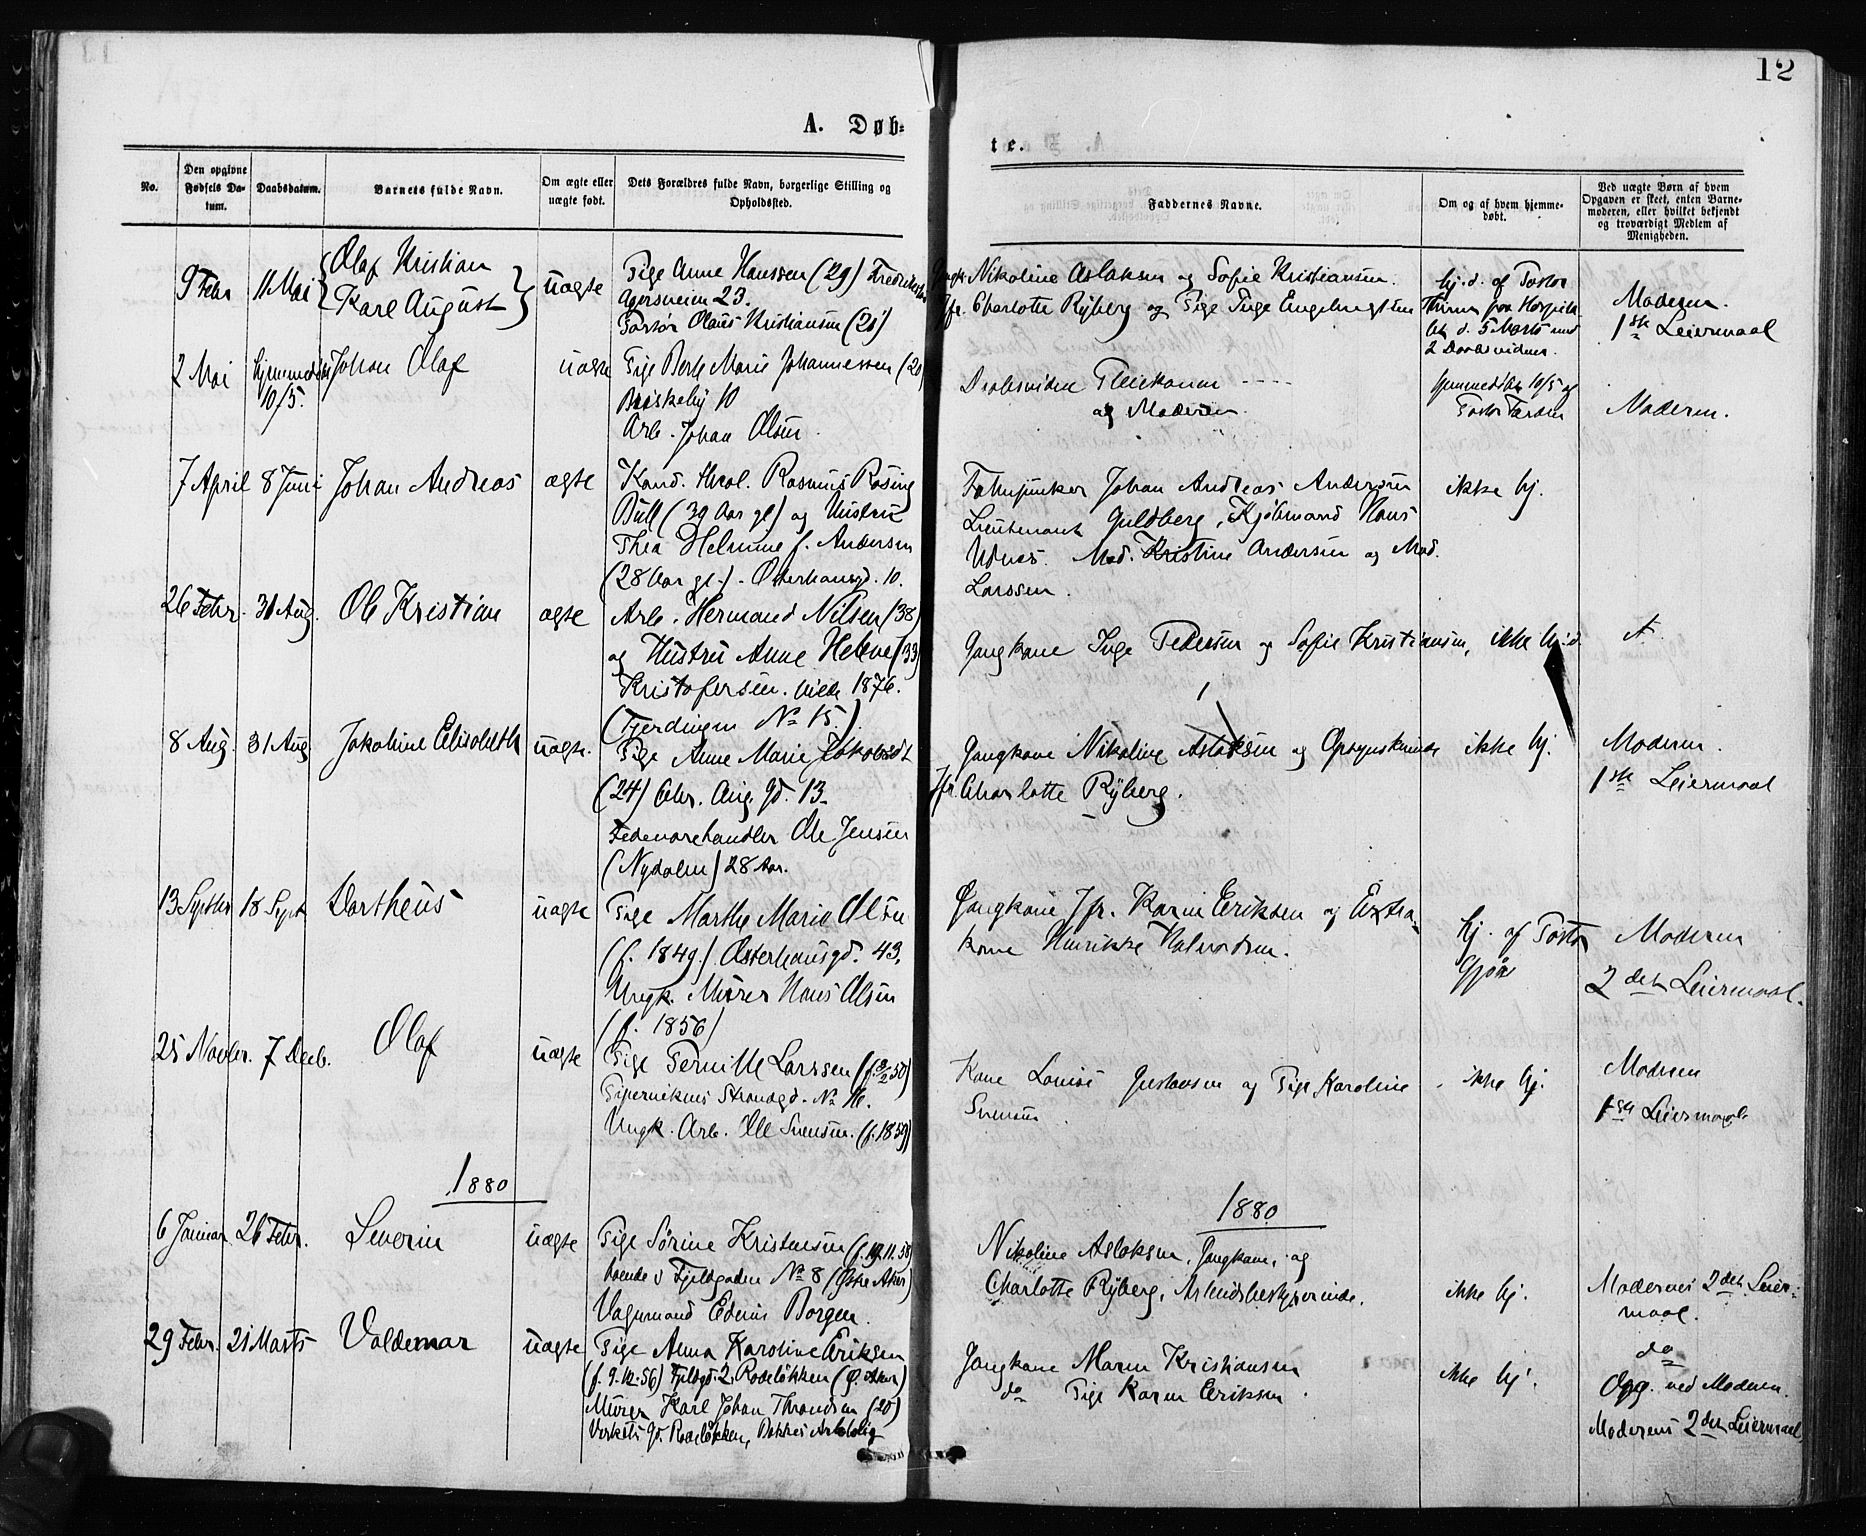 12
A. Døb-
te.
No.
Den opgivne Fødsels Da-tum.
Daabsdatum.
Barnets fulde Navn.
Om ægte eller uægte født.
Dets Forældres fulde Navn, borgerlige Stilling og Opholdssted.
Faddernes Navne.
Om og af hvem hjemme-døbt.
Ved uægte Børn af hvem Opgaven er skeet, enten Barne-moderen, eller hvilket bekjendt og troværdigt Medlem af Menigheden.
9 Febr
11 Mai
Olaf Kristian
Karl August
uægte
Pige Anne Hanssen (29)
23.
Olaus Kristiansen
Nikoline Aslaksen og Sofie Kristiansen.
Jfr. Charlotte Ryberg og Pige Inge Engebregtsen
hj.d. af Pastor
d. 5 Marts med
2 Daabsvidner.
Moderen.
1ste Leiermaal
2 Mai
10/5.
Johan Olaf
uægte
Pige Berte Marie Johannessen
Briskeby 10
Arb. Johan Olsen
Daabsvidne Pleiekonen ----
og Moderen.
hjemmedøbt 10/5 af
Pastor
Moderen.
7 April
8 Juni
Johan Andreas
ægte
Kand. theol. Rasmus Rosing
Bull (39 Aar gl) og Hustru
Thea Helmine f. Andersen
(28 Aar gl.) - Osterhausgd. 10.
Johan Andreas Andersen
Lieutenant Guldberg, Kjøbmand Hans
Udnes. Mad. Kristine Andersen og Mad.
Larssen.
ikke hj.
26 Febr.
31 Aug.
Ole Kristian
ægte
Arb. Hermand Nilsen (38)
og Hustru Anne Helene (33)
Kristofersen. viede 1876.
(Fjerdingen No 15.)
Gangkone Inge Pedersen og Sofie Kristiansen,
ikke hj.d.
8 Aug.
31 Aug
Jakobine Elisabeth
uægte.
Pige Anne Marie Jakobsdt
(24) Chr. Aug. Gd. 13.
Fedevarehandler Ole Jensen
(Nydalen) 28 Aar.
Gangkone Nikoline Aslaksen og Opsynskvinde
Jfr. Charlotte Ryberg.
ikke hj.
Moderen.
1ste Leiermaal
13 Septbr
18 Sept
Dortheus
uægte
Pige Marthe Marie Olsen
(f. 1849.) Osterhausgd. 43.
Ungk. Murer Hans Olsen
(f. 1856)
Gangkone Jfr. Karen Eriksen og Extra-
kone Henrikke Halvordsen.
hj. af Pastor
Gjør
Moderen
2det Leiermaal.
25 Novbr.
7 Decb.
Olaf
uægte
Pige Pernille Larssen
Pipervikens Strandgd. No
Ungk. Arb. Ole Svensen.
Kone Louise Gustavsen og Pige Karoline
Svensen
ikke hj.
Moderen
1ste Leiermaal.
1880
1880
6 Januar
26 Febr.
Severin
uægte
Pige Sørine Kristensen
boende i Fjeldgaden No 8 (Østre Aker)
Vognmand Edvin Borgen.
Nikoline Aslaksen, Gangkone, og
Charlotte Ryberg, Arbeidsbestyrerinde.
ikke hj.
Moderens 2det Leier-
maal.
29 Febr.
21 Marts
Valdemar
uægte
Pige Anna Karoline Eriksen
(f. 9.12.56) Fjeldgd. 2, Rodeløkken (Ø. Aker)
Murer Karl Johan Throndsen (20)
Verksts Gd. Rodeløkken,
Gangkone Maren Kristiansen
do Pige Karen Eriksen.
ikke hj.
do
Opg. ved Moderen.
Moderens 2det Leiermaal.